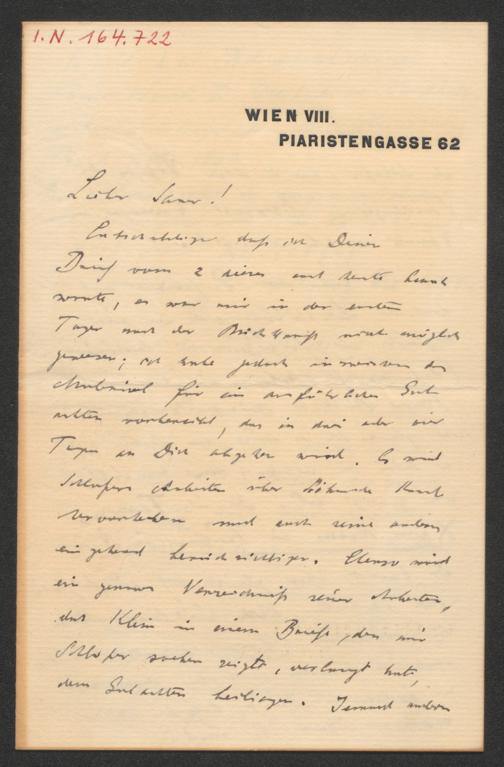 I.N. 164.722
WIEN VIII.
PIARISTENGASSE 62
Lieber Sauer!
Entschuldige, daß ich Deinen
Brief vom 2 dieses erst heute
konnte, es war mir in den ersten
Tagen nach der nicht möglich
gewesen; ich habe jedoch inzwischen das
Material für ein ausführliches Gut-
achten vorbereitet, das in drei oder vier
Tagen an Dich abgehen wird. Es wird
Schlossers Arbeiten über böhmische Kunst
und auch seine anderen
eingehend berücksichtigen. Ebenso wird
ein genaues Verzeichniß seiner Arbeiten,
das Klein in einem Briefe, den mir
Schlosser soeben zeigte, verlangt hat,
dem Gutachten beiliegen. Jemand anderen